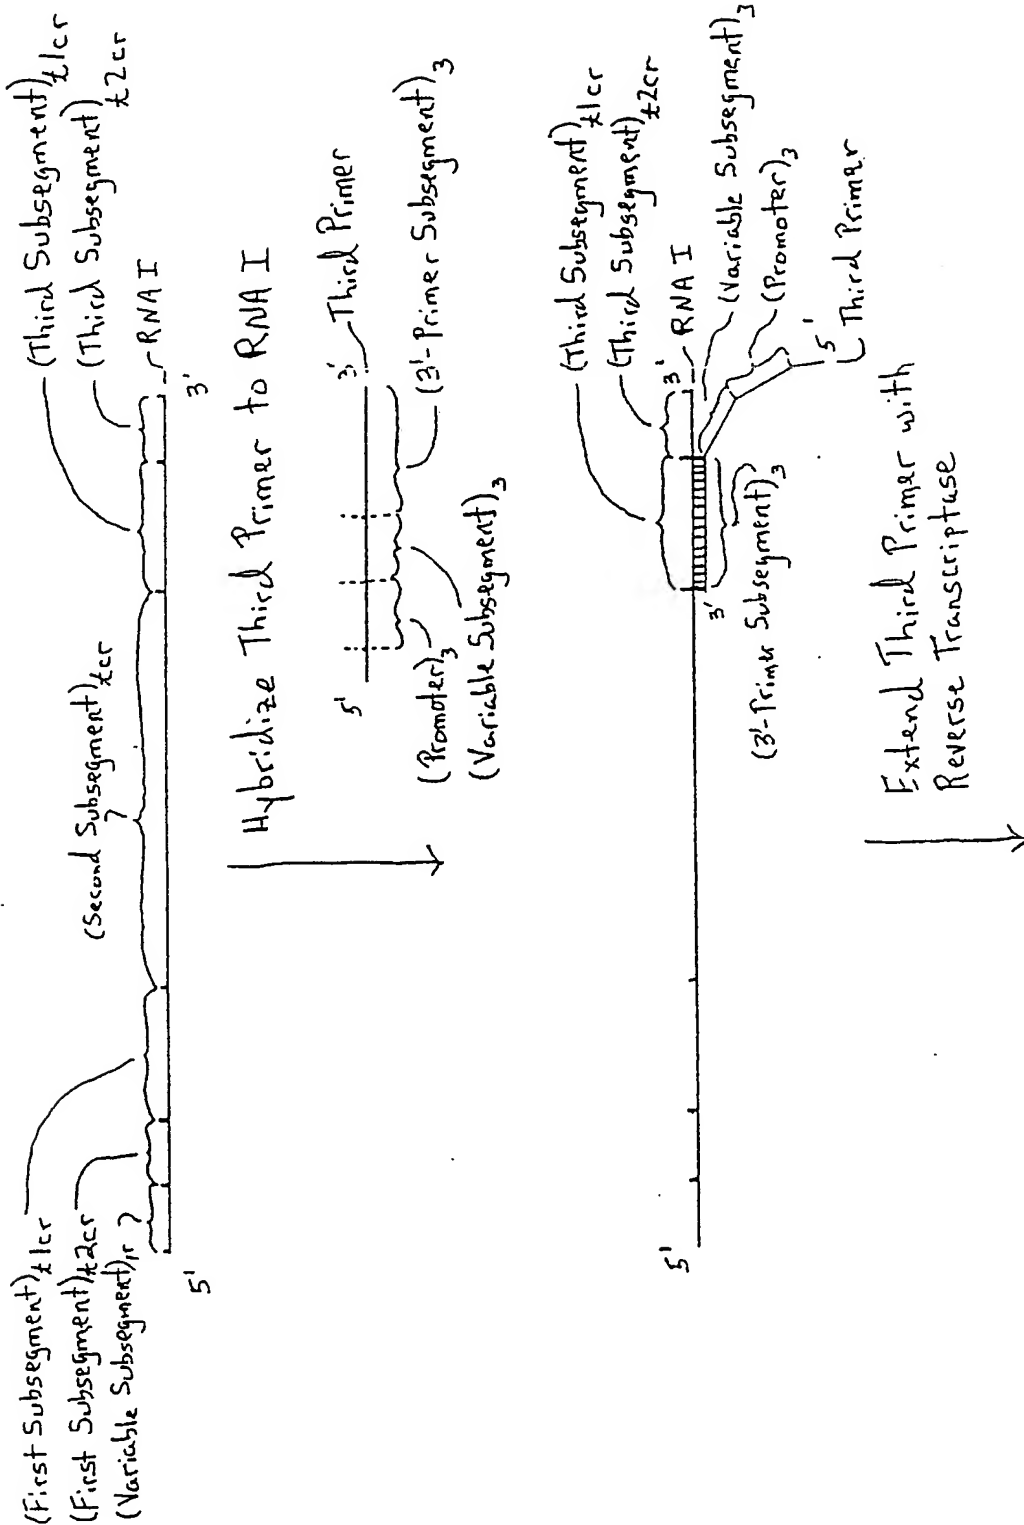 (First Subsegment)t1cr
(First Subsegment)t2cr
(Variable Subsegment)1r
(Second Subsegment)tcr
(Third Subsegment)t1cr
(Third Subsegment)t2cr
RNA I
5'
3'
Hybridize Third Primer to RNA I
5'
3'
Third Primer
(Promoter)3
(Variable Subsegment)3
(3'-Primer Subsegment)3
(Third Subsegment)t1cr
(Third Subsegment)t2cr
5'
3'
RNA I
3'
(Variable Subsegment)3
(Promoter)3
5'
Third Primer
(3'-Primer Subsegment)3
Extend Third Primer with
Reverse Transcriptase